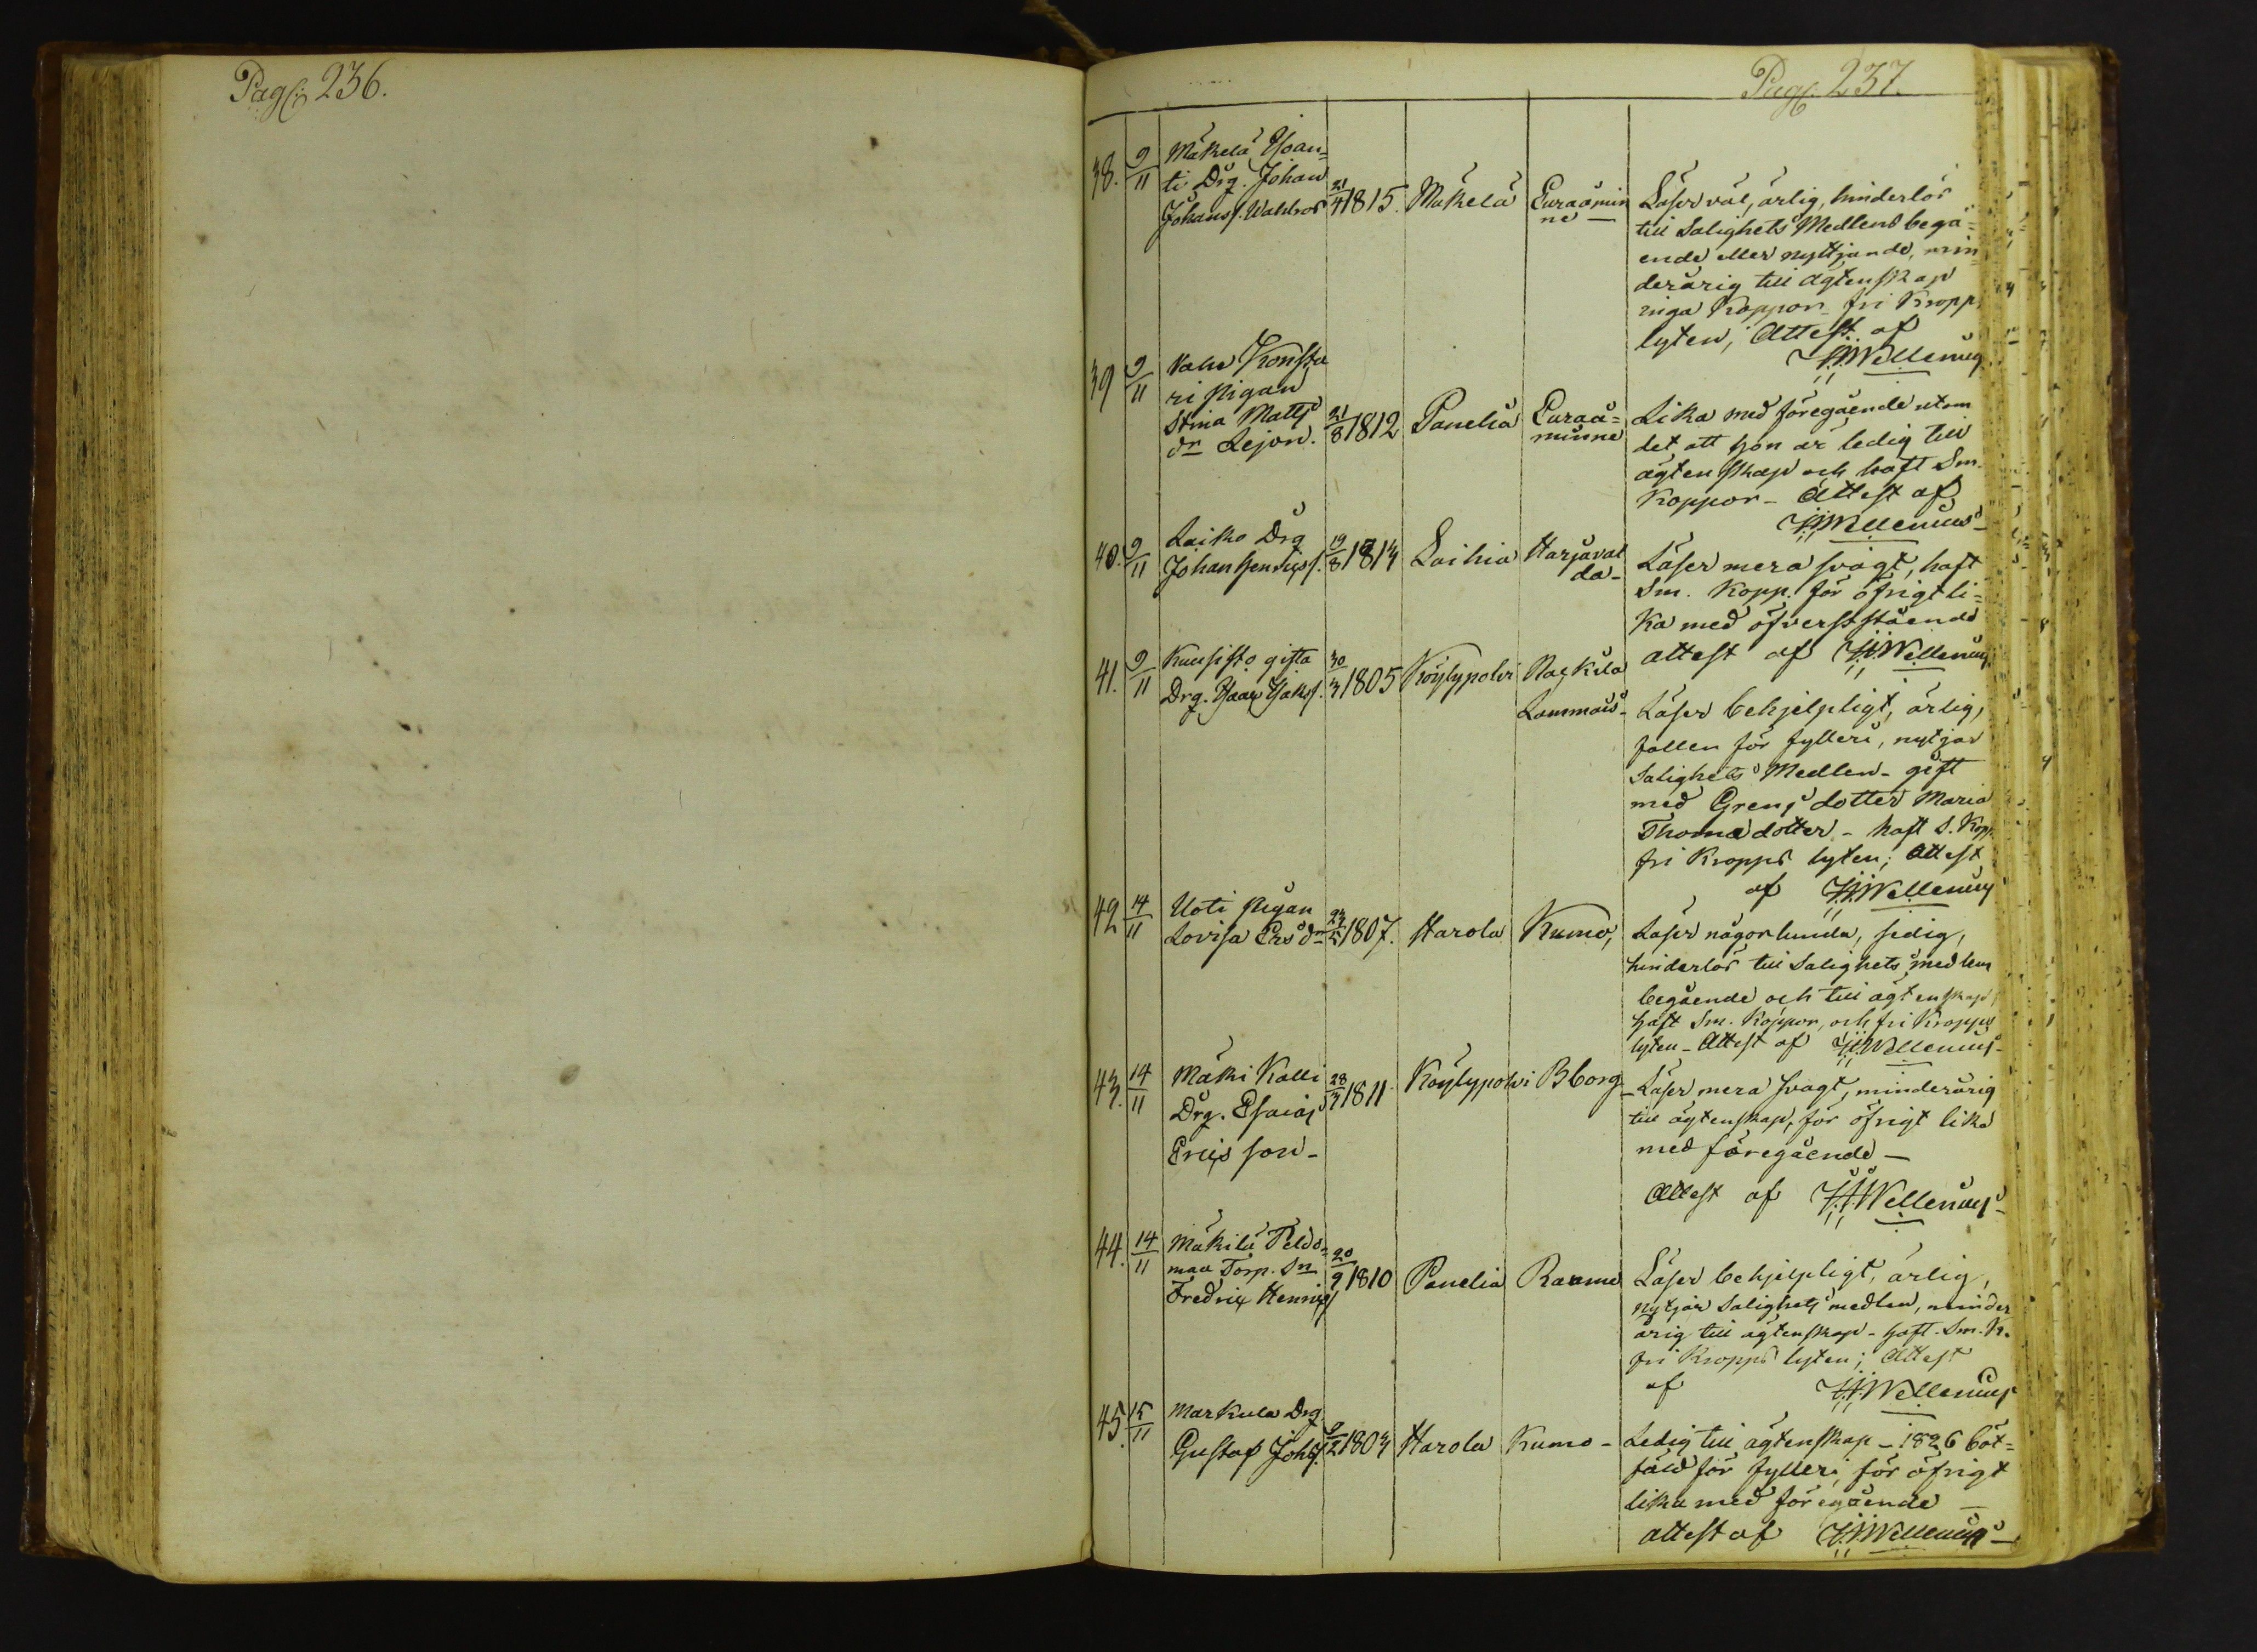 Pag: 236.
Pag: 237.
38. 9/11 Mäkelä Yoan=
ti Drg. Johan
Johanss. Wahlros 21/4 1815. Mäkelä Euraåmin
ne —
Läser väl, ärlig, hinderlös
till Salighets Medlens begå=
ende eller nyttjande, min
derårig till ägtenskap
inga Koppor fri Kropps
lyten, Attest af
Wellenius
39 9/11 Konsta
ri Pigan
Stina Matts
dr Lejon. 21/8 1812 Panelia Euraå=
minne
Lika med föregående utom
det att hon är ledig till
ägtenskap och haft Sm.
Koppor – Attest af
Wellenius
40. 9/11 Laiko Drg
Johan Hendrss. 19/8 1814 Laihia Harjaval
da –
Läser mera svagt, haft
Sm. Kopp. för öfrigt li=
ka med öfverstående
attest af Wellenius
41. 9/11 Kuusisto gifta
Drg. Isaac Isakss. 30/3 1805 Köylypolvi
Lammais –
Läser behjelpligt, ärlig,
fallen för fylleri, nytjar
Salighets Medlen – gift
med Grens dotter Maria
Thomædotter – haft S. Kopp.
fri Kropps lyten; Attest
af Wellenius
42 14/11 Uoti Pigan
Lovisa Ersdr 23/5 1807. Harola Kumo,
Läser någorlunda, sedig,
hinderlös till Salighets medlens
begående och till ägtenskap,
haft Sm. Koppor, och fri Kropps
lyten – Attest af Wellenius
43. 14/11 Mäki Kalli
Drg. Esaias
Ericsson – 28/3 1811 Köylypolvi Bborg
Läser mera svagt, minderårig
till ägtenskap, för öfrigt lika
med föregående —
Attest af Wellenius
44. 14/11 Mäkilä Peldo=
maa Torp. Sn
Fredric Henrics 20/9 1810 Panelia Raumo
Läser behjelpligt, ärlig,
nytjar Salighets medlen, minder
årig till ägtenskap – haft Sm. K.
fri Kropps lyten; Attest
af Wellenius
45. 15/11 Markula Drg.
Gustaf Johss. 9/2 1803 Harola Kumo –
Ledig till ägtenskap – 1826 böt=
fäld för fylleri, för öfrigt
lika med föregående —
attest af Wellenius